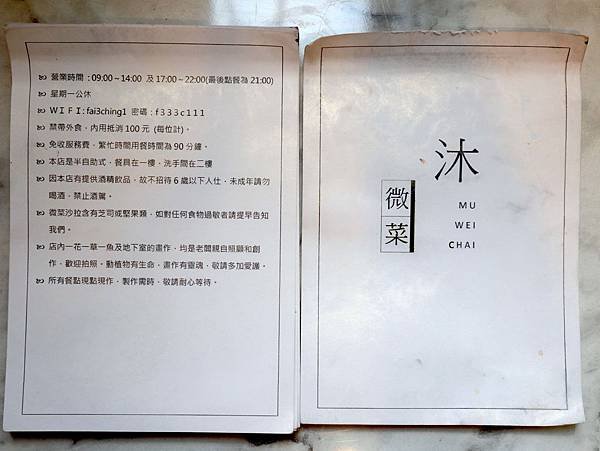 營業時間：09:00~14:00 及17:00~22:00(最後點餐為 21:00)
星期一公休
ＷＩＦＩ: fai3ching1 密碼：f333c111
禁帶外食，內用抵消 100 元 (每位計)。
免收服務費，繁忙時間用餐時間為 90 分鐘。
本店是半自助式，餐具在一樓，洗手間在二樓
因本店有提供酒精飲品，故不招待 6 歲以下人仕，未成年請勿
喝酒，禁止酒駕。
微菜沙拉含有芝司或堅果類，如對任何食物過敏者請提早告知
我們。
店內一花一草一魚及地下室的畫作，均是老闆親自照顧和創
作，歡迎拍照。動植物有生命，畫作有靈魂，敬請多加愛護。
所有餐點現點現作，製作需時，敬請耐心等待。
沐
微
菜
MU
WEI
CHAI